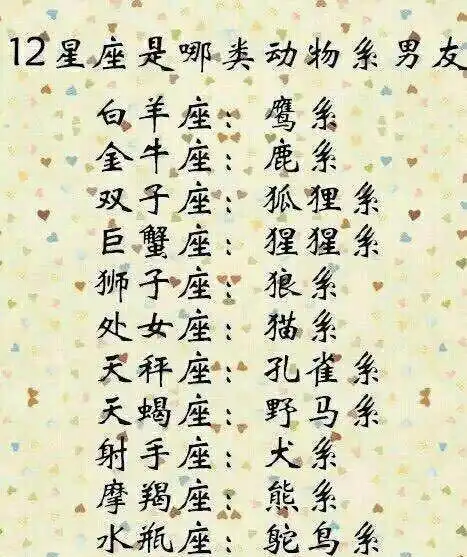 12星座是哪类动物系男友
白羊座：鹰系
金牛座：鹿系
双子座：狐狸系
巨蟹座：猩猩系
狮子座：狼系
处女座：猫系
天秤座：孔雀系
天蝎座：野马系
射手座：犬系
摩羯座：熊系
水瓶座：鸵鸟系